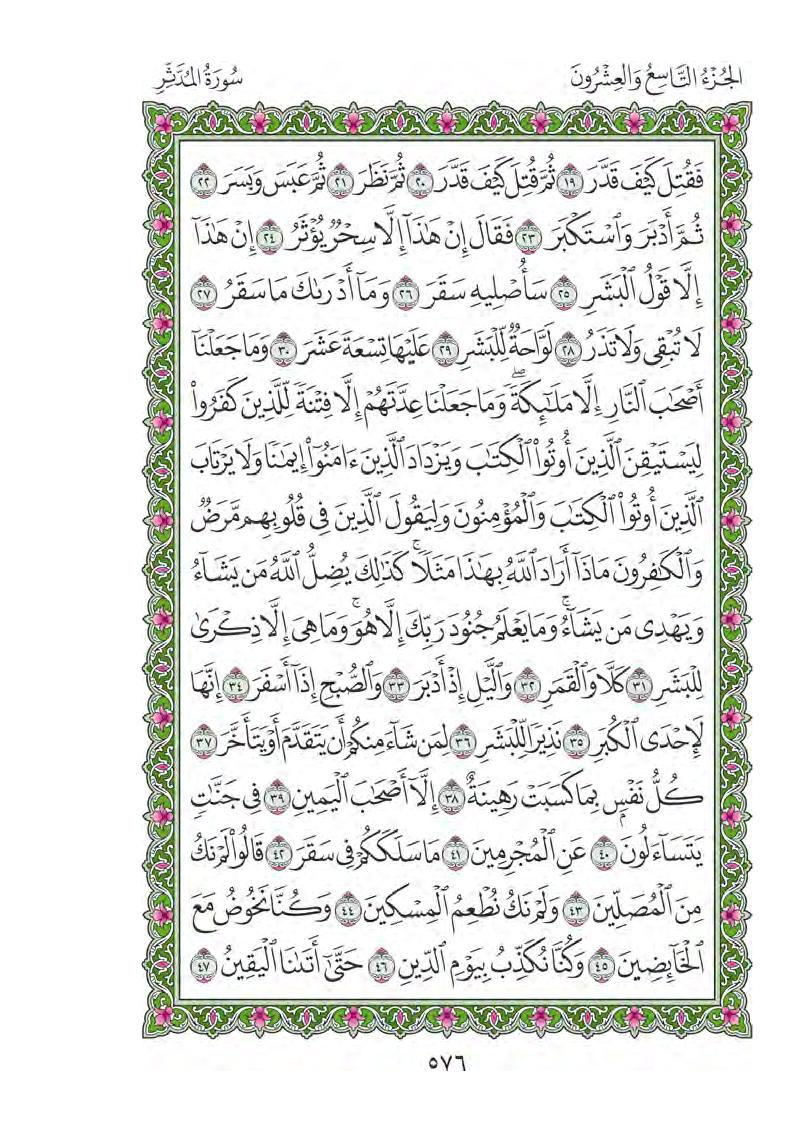 الجُزْءُ التَّاسِعُ وَالعِشْرُونَ سُورَةُ المُدَّثِّرِ
فَقُتِلَ كَيْفَ قَدَّرَ ١٩ ثُمَّ قُتِلَ كَيْفَ قَدَّرَ ٢٠ ثُمَّ نَظَرَ ٢١ ثُمَّ عَبَسَ وَبَسَرَ ٢٢
ثُمَّ أَدْبَرَ وَٱسْتَكْبَرَ ٢٣ فَقَالَ إِنْ هَٰذَآ إِلَّا سِحْرٌ يُؤْثَرُ ٢٤ إِنْ هَٰذَآ
إِلَّا قَوْلُ ٱلْبَشَرِ ٢٥ سَأُصْلِيهِ سَقَرَ ٢٦ وَمَآ أَدْرَىٰكَ مَا سَقَرُ ٢٧
لَا تُبْقِى وَلَا تَذَرُ ٢٨ لَوَّاحَةٌ لِّلْبَشَرِ ٢٩ عَلَيْهَا تِسْعَةَ عَشَرَ ٣٠ وَمَا جَعَلْنَآ
أَصْحَٰبَ ٱلنَّارِ إِلَّا مَلَٰٓئِكَةً ۖ وَمَا جَعَلْنَا عِدَّتَهُمْ إِلَّا فِتْنَةً لِّلَّذِينَ كَفَرُوا۟
لِيَسْتَيْقِنَ ٱلَّذِينَ أُوتُوا۟ ٱلْكِتَٰبَ وَيَزْدَادَ ٱلَّذِينَ ءَامَنُوٓا۟ إِيمَٰنًا وَلَا يَرْتَابَ
ٱلَّذِينَ أُوتُوا۟ ٱلْكِتَٰبَ وَٱلْمُؤْمِنُونَ وَلِيَقُولَ ٱلَّذِينَ فِى قُلُوبِهِم مَّرَضٌ
وَٱلْكَٰفِرُونَ مَاذَآ أَرَادَ ٱللَّهُ بِهَٰذَا مَثَلًا ۚ كَذَٰلِكَ يُضِلُّ ٱللَّهُ مَن يَشَآءُ
وَيَهْدِى مَن يَشَآءُ ۚ وَمَا يَعْلَمُ جُنُودَ رَبِّكَ إِلَّا هُوَ ۚ وَمَا هِىَ إِلَّا ذِكْرَىٰ
لِلْبَشَرِ ٣١ كَلَّا وَٱلْقَمَرِ ٣٢ وَٱلَّيْلِ إِذْ أَدْبَرَ ٣٣ وَٱلصُّبْحِ إِذَآ أَسْفَرَ ٣٤ إِنَّهَا
لَإِحْدَى ٱلْكُبَرِ ٣٥ نَذِيرًا لِّلْبَشَرِ ٣٦ لِمَن شَآءَ مِنكُمْ أَن يَتَقَدَّمَ أَوْ يَتَأَخَّرَ ٣٧
كُلُّ نَفْسٍۭ بِمَا كَسَبَتْ رَهِينَةٌ ٣٨ إِلَّآ أَصْحَٰبَ ٱلْيَمِينِ ٣٩ فِى جَنَّٰتٍ
يَتَسَآءَلُونَ ٤٠ عَنِ ٱلْمُجْرِمِينَ ٤١ مَا سَلَكَكُمْ فِى سَقَرَ ٤٢ قَالُوا۟ لَمْ نَكُ
مِنَ ٱلْمُصَلِّينَ ٤٣ وَلَمْ نَكُ نُطْعِمُ ٱلْمِسْكِينَ ٤٤ وَكُنَّا نَخُوضُ مَعَ
ٱلْخَآئِضِينَ ٤٥ وَكُنَّا نُكَذِّبُ بِيَوْمِ ٱلدِّينِ ٤٦ حَتَّىٰٓ أَتَىٰنَا ٱلْيَقِينُ ٤٧
٥٧٦